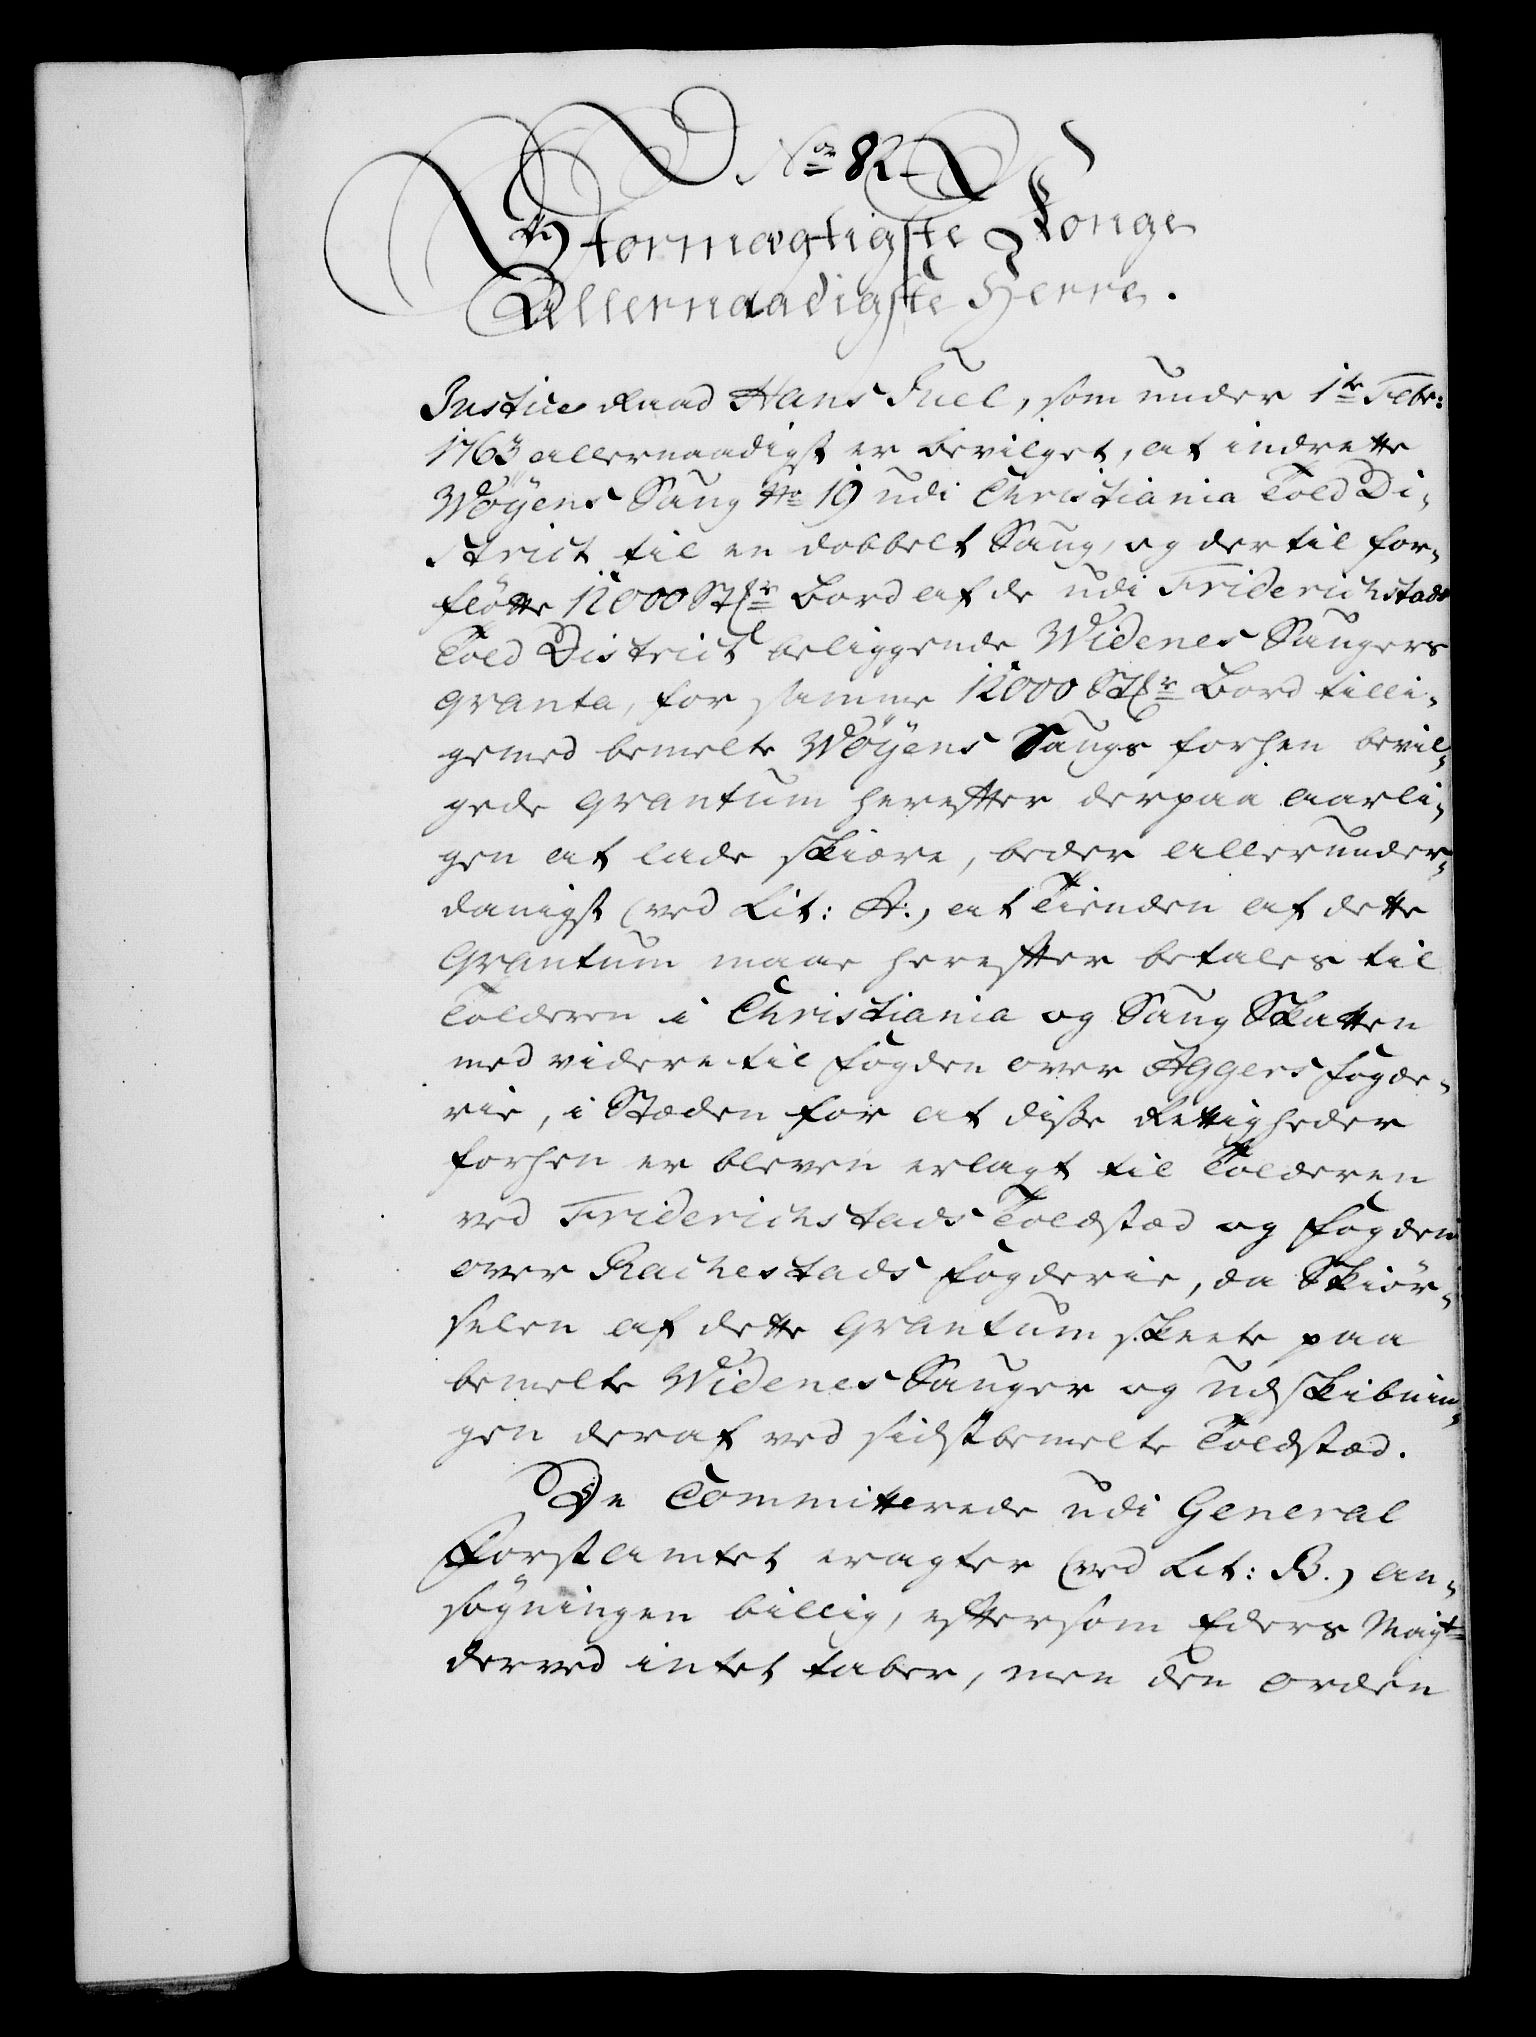 No 82.
Stormægtigste Konge
Allernaadigste Herre.
Justice Raad Hans Juel, som under 1te Febr:
1763 allernaadigst er bevilget, at indrette
Wøyens Saug No 19 udi Christiania Told Di-
strict til en dobbelt Saug, og dertil for-
fløtte 12000 Stkr Bord af de udi Friderichstads
Told District beliggende Widenes Saugers
qvanta, for samme 12000 Stkr Bord tilli-
gemed bemelte Wøyens Saugs forhen bevil-
gede qvantum herefter derpaa aarli-
gen at lade skiære, beder allerunder-
danigst (ved Lit: A.) at Tienden af dette
Qvantum maae herefter betales til
Tolderen i Christiania og Saug Skatten
med videre til Fogden over Aggers Fogde-
rie, i Stæden for at disse Rettigheder
forhen er bleven erlagt til Tolderen
ved Friderichstads Toldstæd og Fogden
over Rachestads Fogderie, da Skiør-
selen af dette qvantum skeete paa
bemelte Widenes Sauger og udskibnin-
gen deraf ved sidstbemelte Toldstæd.
De Committerede udi General
Forstamtet eragter (ved Lit: B.) an-
søgningen billig, eftersom Eders Mayt
derved intet taber, men den orden